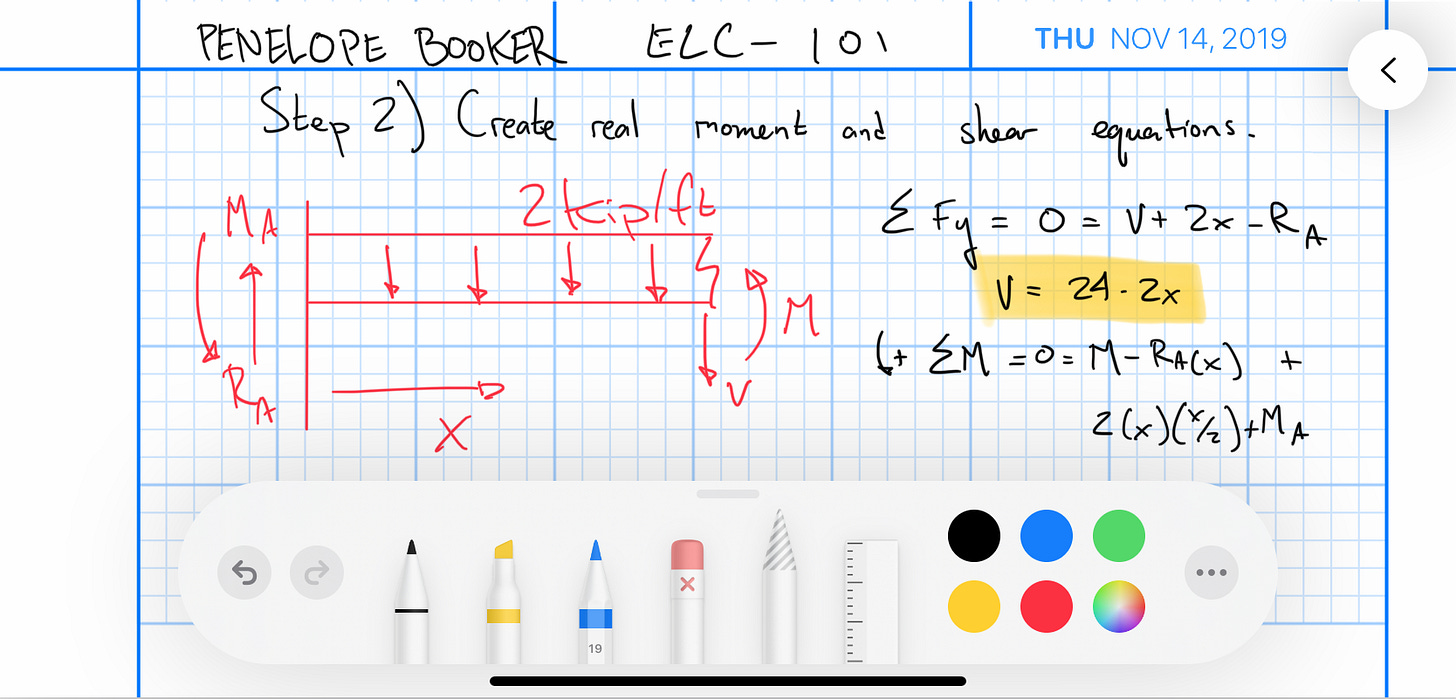 PENELOPE BOOKER ELC-101 THU NOV 14, 2019
Step 2) Create real moment and shear equations.
2 kip/ft
M_A
R_A
M
V
X
Σ Fy = 0 = V + 2x - R_A
V = 24 - 2x
(+ ΣM = 0 = M - R_A(x) +
2(x)(x/2) + M_A
19